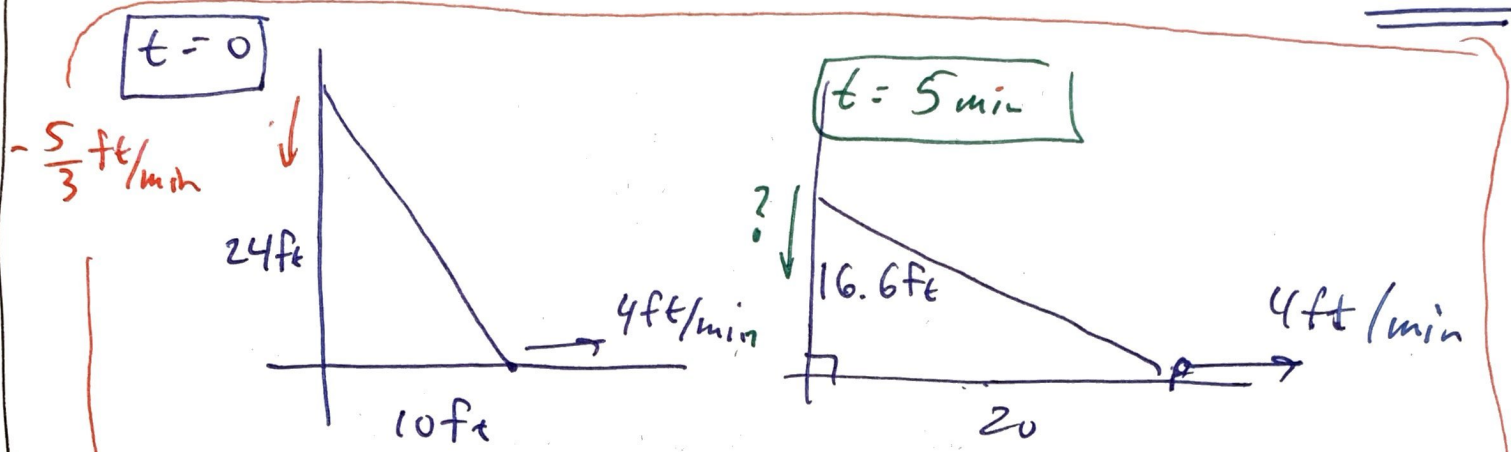 t = 0
- 5/3 ft/min
24ft
4ft/min
10ft
t = 5 min
?
16.6ft
4ft/min
20